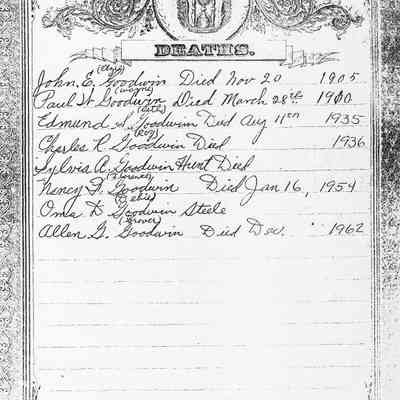 DEATHS.
John. E. Goodwin Died Nov 20 1905
(wayne)
Paul W. Goodwin Died March 28th 1910
Edmund W. Goodwin Died Aug 11th 1935
(roy)
Charles R Goodwin Died 1936
Sylvia A. Goodwin Hunt Died
(Florence)
Nancy F. Goodwin Died Jan 16, 1954
Oma D Goodwin Steele
(Grover)
Allen G. Goodwin Died Dec. 1962